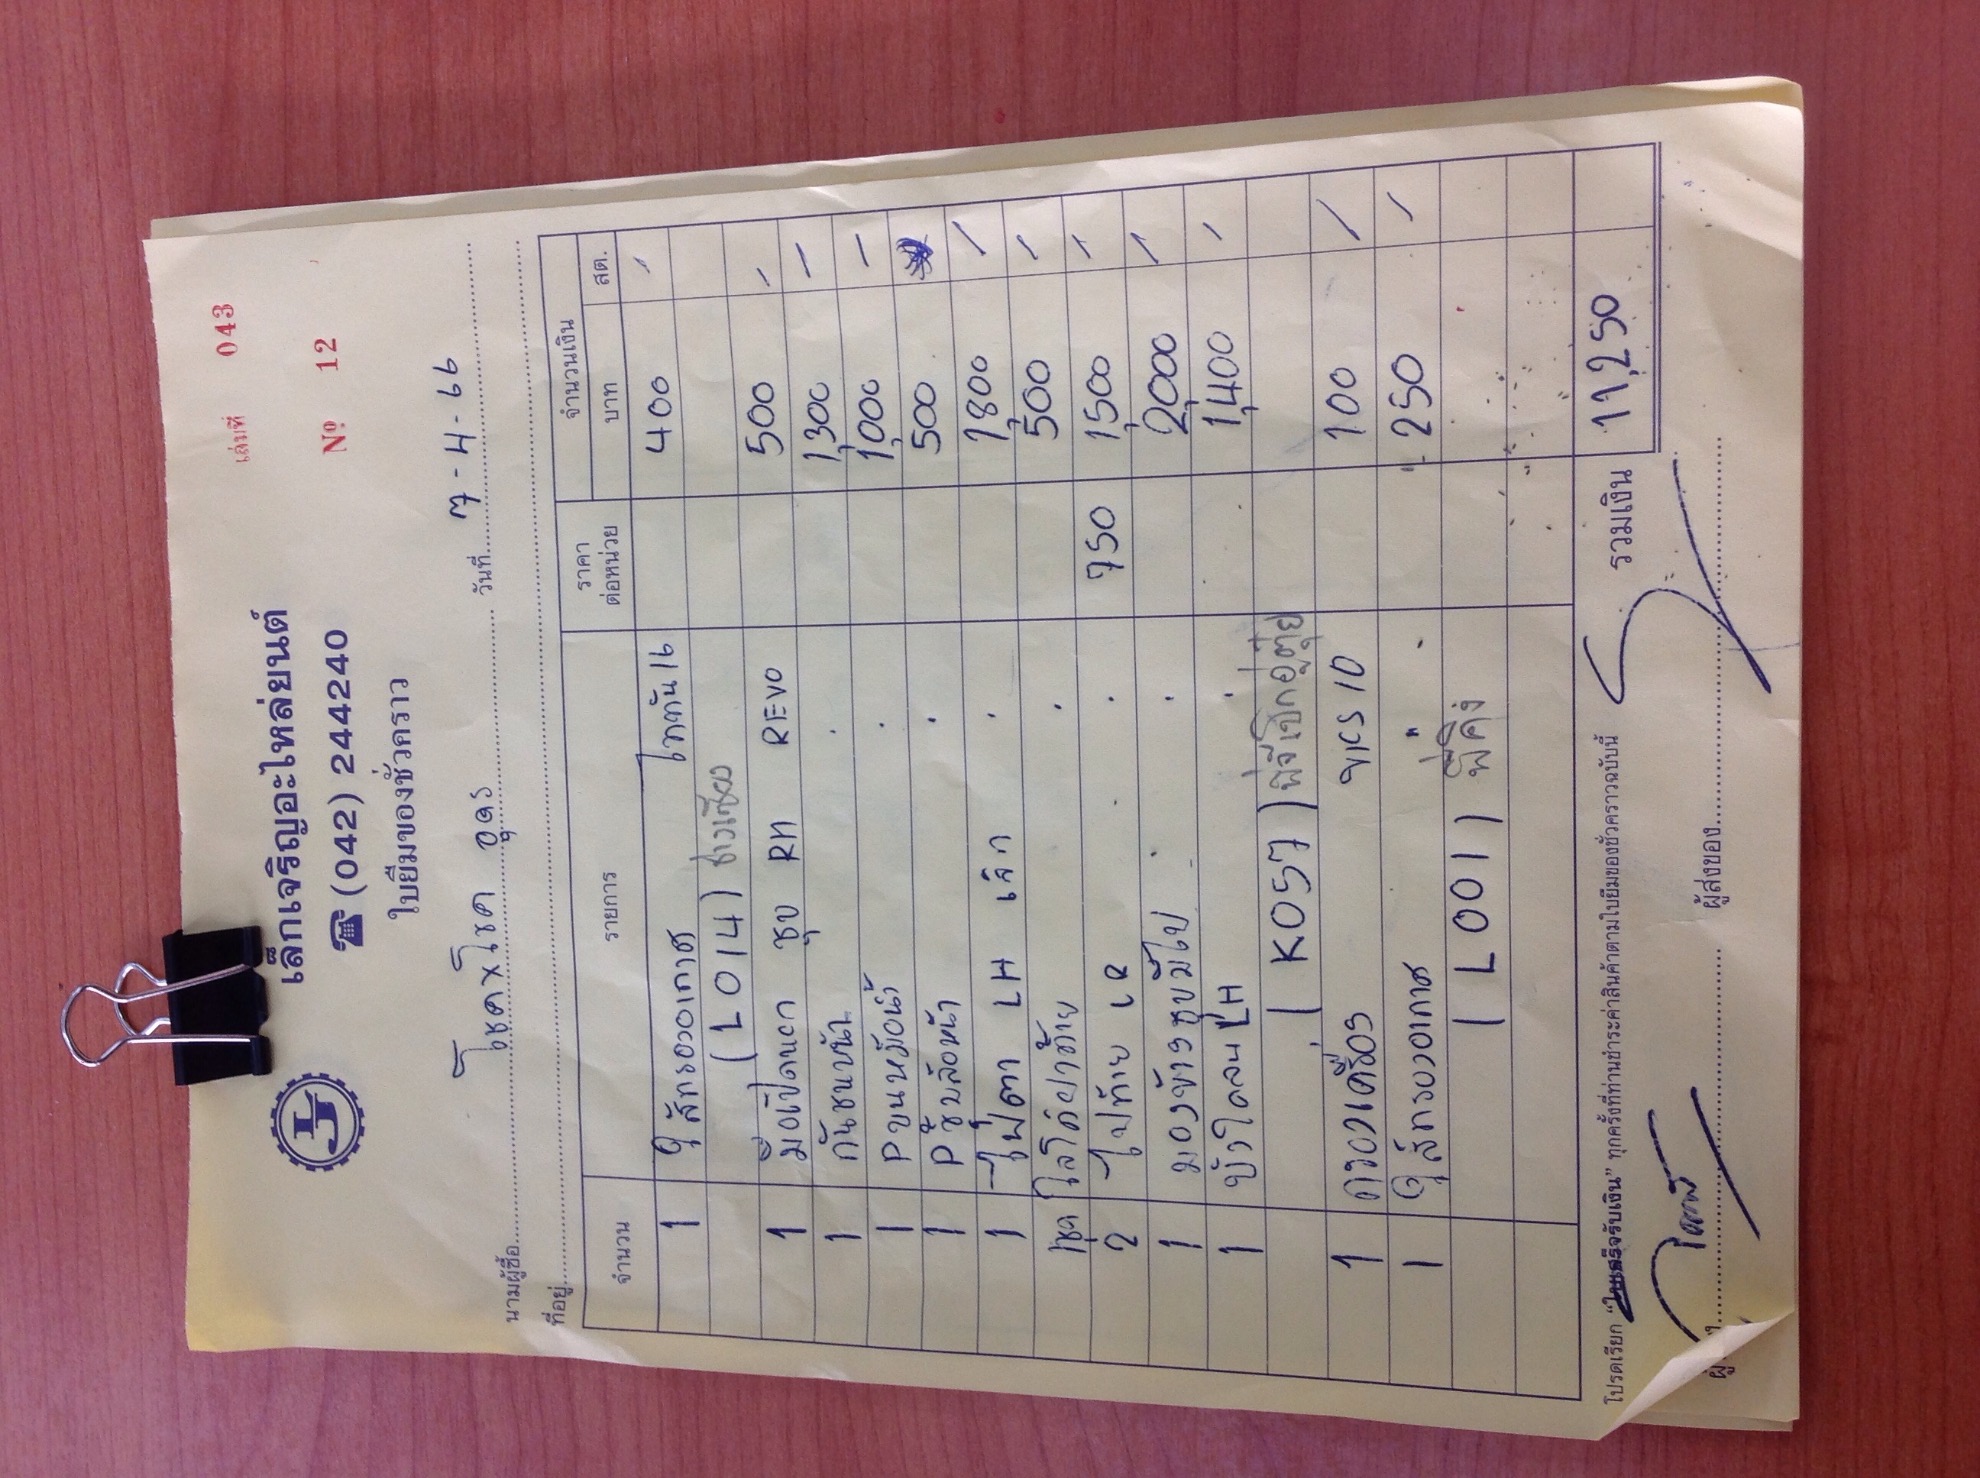 เล่มที่ 043
เล็กเจริญอะไหล่ยนต์
☎ (042) 244240
Nº 12
ใบยืมของชั่วคราว
นามผู้ซื้อ โชคxโชค อุดร วันที่ 7-4-66
ที่อยู่
จำนวน รายการ ราคาต่อหน่วย จำนวนเงิน บาท สต.
1 ไส้กรองอากาศ ไททัน 16 400 -
(L014) ช่างเซียง
1 มือเปิดนอก ชุบ RH REVO 500 -
1 กันชนหน้า . 1,300 -
1 P ขนหม้อน้ำ . 1,000 -
1 P ซุ้มล้อหน้า . 500
1 ไฟตา LH เล็ก . 1,800 -
1ชุด โลโก้ฝาท้าย . 500 -
2 ไฟท้าย LR . 750 1,500 -
1 มองข้างชุบมีไฟ . 2,000 -
1 บังโคลน LH . 1,400 -
(K057)
1 กรองเครื่อง 100 -
1 ไส้กรองอากาศ " 250 -
(L001)
รวมเงิน 11,250
โปรดเรียก "ใบเสร็จรับเงิน" ทุกครั้งที่ท่านชำระค่าสินค้าตามใบยืมของชั่วคราวฉบับนี้
ผู้ส่งของ